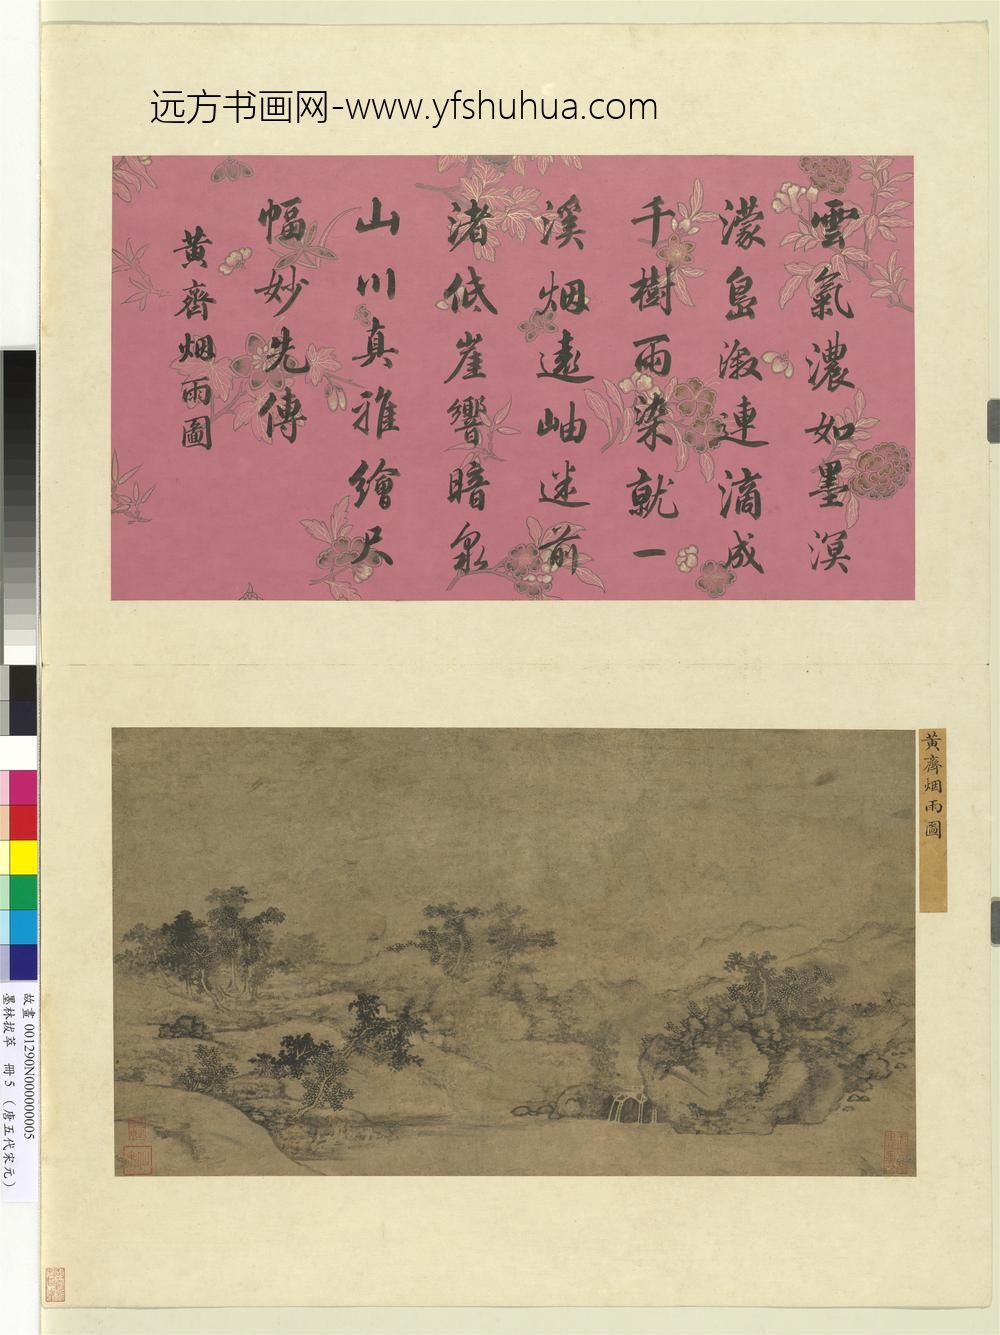 远方书画网-www.yfshuhua.com
雲氣濃如墨溟
濛島溆連滴成
千樹雨染就一
溪烟遠岫迷前
渚低崖響暗泉
山川真雅繪尺
幅妙先傳
黃齊烟雨圖
黃齊烟雨圖
故畫 001290N000000005
墨林拔萃 冊 5 (唐五代宋元)